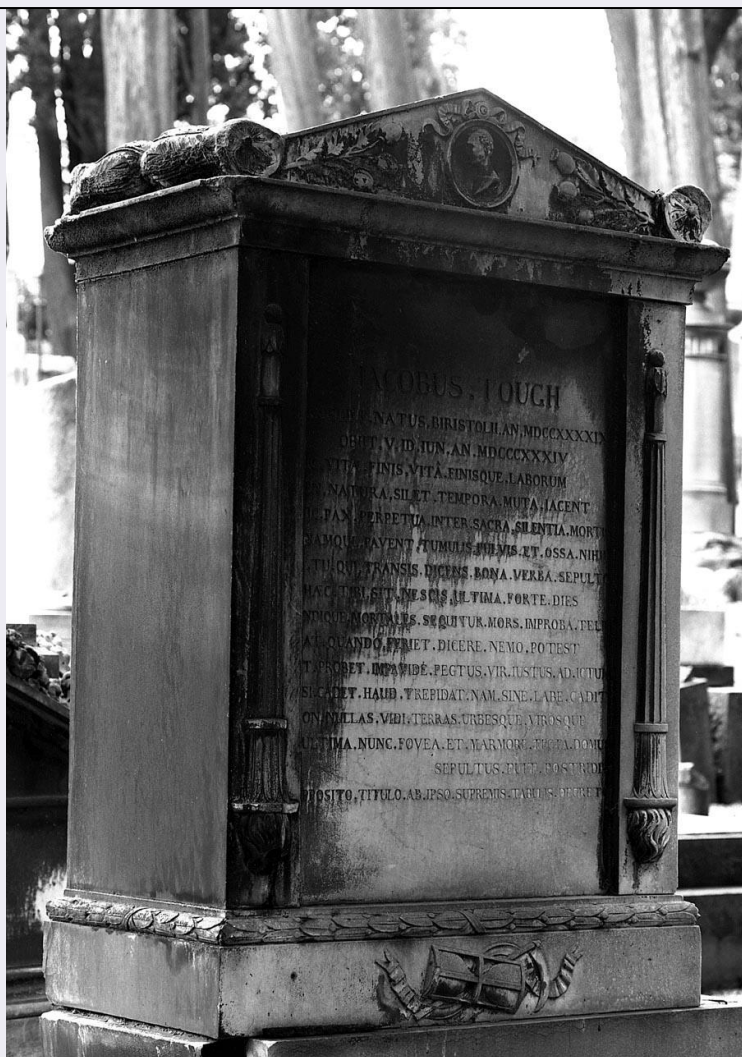 JACOBUS . TOUGH
NATUS . BIRISTOLII . AN . MDCCXXXXIX
OBIIT . V . ID . IUN . AN . MDCCCXXXIV
VITAE . FINIS . VITÂ . FINISQUE . LABORUM
NATURA . SILET . TEMPORA . MUTA . IACENT
PAX . PERPETUA . INTER . SACRA . SILENTIA . MORTI
NAMQUE . FAVENT . TUMULIS . PULVIS . ET . OSSA . NIHI
TU . QUI . TRANSIS . DICENS . BONA . VERBA . SEPULTO
HAEC . TIBI . SIT . NESCIS . ULTIMA . FORTE . DIES
NDIQUE . MORTALES . SEQUITUR . MORS . IMPROBA . TEL
AT . QUANDO . FERIET . DICERE . NEMO . POTEST
T . PROBET . IMPAVIDÈ . PECTUS . VIR . IUSTUS . AD . ICTUM
SI . CADET . HAUD . TREPIDAT . NAM . SINE . LABE . CADIT
ON . NULLAS . VIDI . TERRAS . URBESQUE . VIROSQUE
ULTIMA . NUNC . FOVEA . ET . MARMORE . DOMU
SEPULTUS . FUIT . POSTRIDIE
PPOSITO . TITULO . AB . IPSO . SUPREMIS . TABULIS . DECRETO